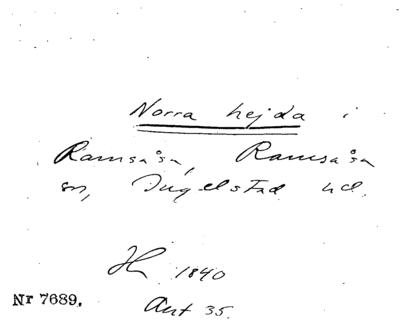 Norra hejda i
Ramsåsa, Ramsåsa
sn, Ingelstad hd.
H 1840
Ant 35.
Nr 7689.